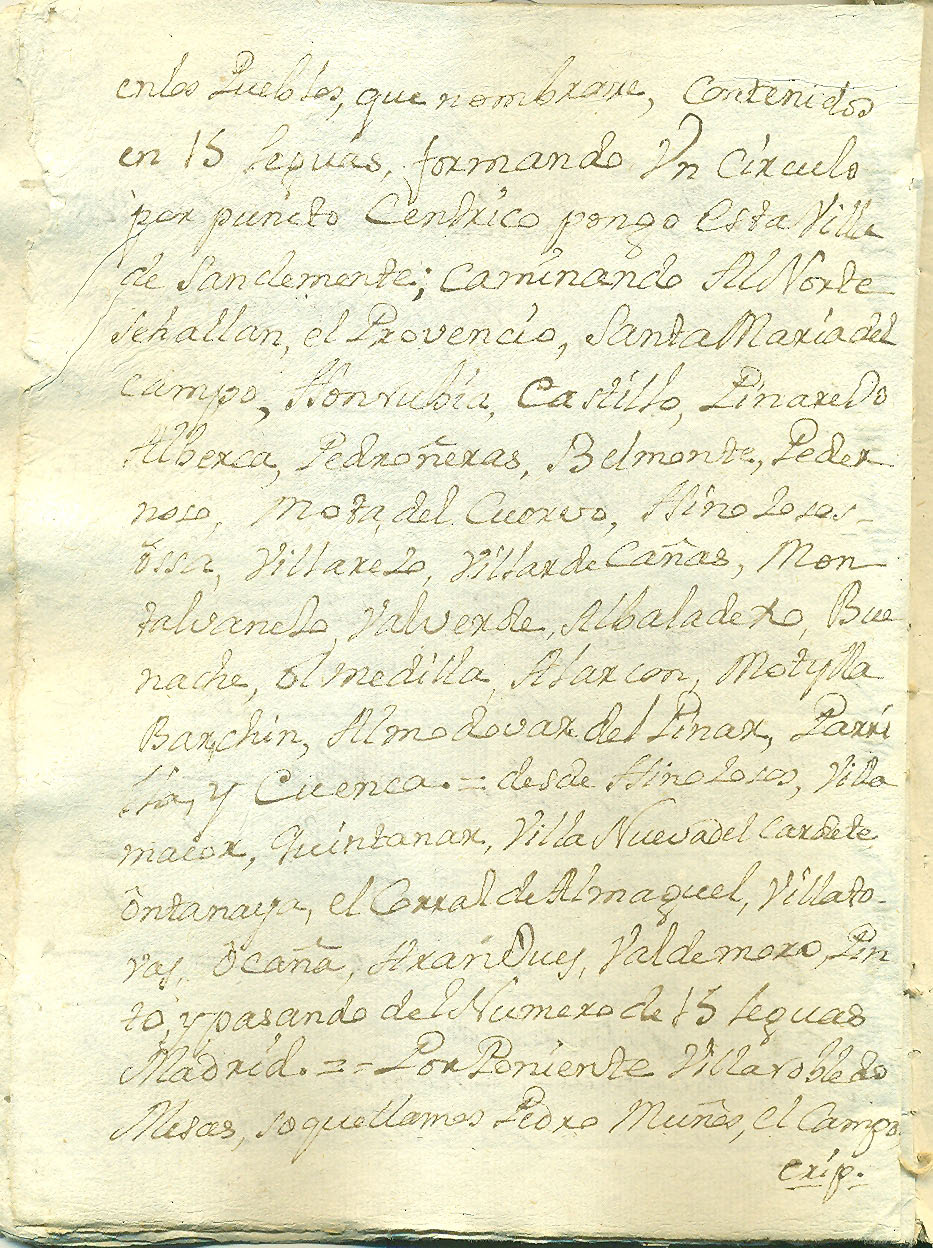 enlos Pueblos, que nombrare, Contenidos
en 15 leguas, formando Vn Circulo
por puncto Centrico pongo esta Villa
de Sanclemente; Caminando Al Norte
sehallan, el Provencio, Santa Maria del
campo, Honrubia, Castillo, Pinaredo
Alberca, Pedroñeras, Belmonte, Peder
noso, Mota del Cuervo, Hinolosos-
ossa, Villarejo, Villar de Cañas, Mon
talvanejo, Valverde, Albaladejo, Bue
nache, olmedilla, Alarcon, Motylla
Barchin, Almodovar del Pinar, Parri
lla, y Cuenca. = desde Hinolosos, Villa
maior, Quintanar, Villa Nueva del cardete
ontanaya, el Corral de Almaguel, Villato-
vas, Ocaña, Aranjues, Valdemoro, Pin
to, y pasando del Numero de 15 leguas
Madrid. = = Por Poniente Villarobledo
Mesas, so quellamos Pedro Muños, el Campo
crip.